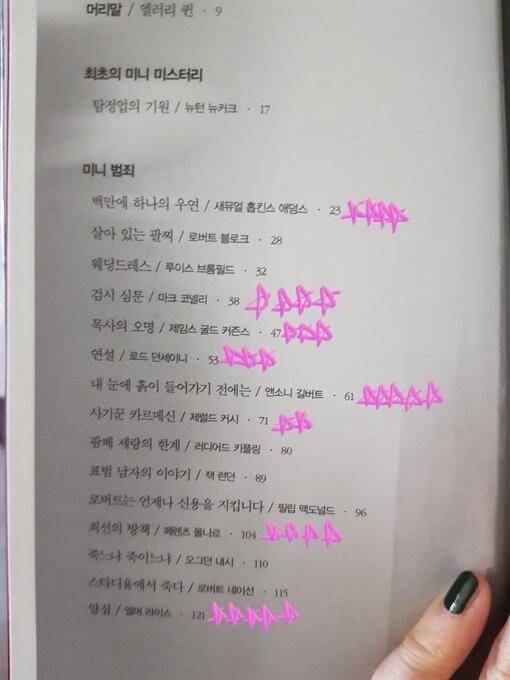 머리말 / 엘러리 퀸 · 9
최초의 미니 미스터리
탐정업의 기원 / 뉴턴 뉴커크 · 17
미니 범죄
백만에 하나의 우연 / 새뮤얼 홉킨스 애덤스 · 23
살아 있는 팔찌 / 로버트 블로크 · 28
웨딩드레스 / 루이스 브롬필드 · 32
검시 심문 / 마크 코넬리 · 38
목사의 오명 / 제임스 굴드 커즌스 · 47
연설 / 로드 던세이니 · 53
내 눈에 흙이 들어가기 전에는 / 앤소니 길버트 · 61
사기꾼 카르메신 / 제럴드 커시 · 71
팜페 세랑의 한계 / 러디어드 키플링 · 80
표범 남자의 이야기 / 잭 런던 · 89
로버트는 언제나 신용을 지킵니다 / 필립 맥도널드 · 96
최선의 방책 / 페렌츠 몰나르 · 104
죽느냐 죽이느냐 / 오그던 내시 · 110
스타디움에서 죽다 / 로버트 네이선 · 115
양심 / 엘머 라이스 · 121